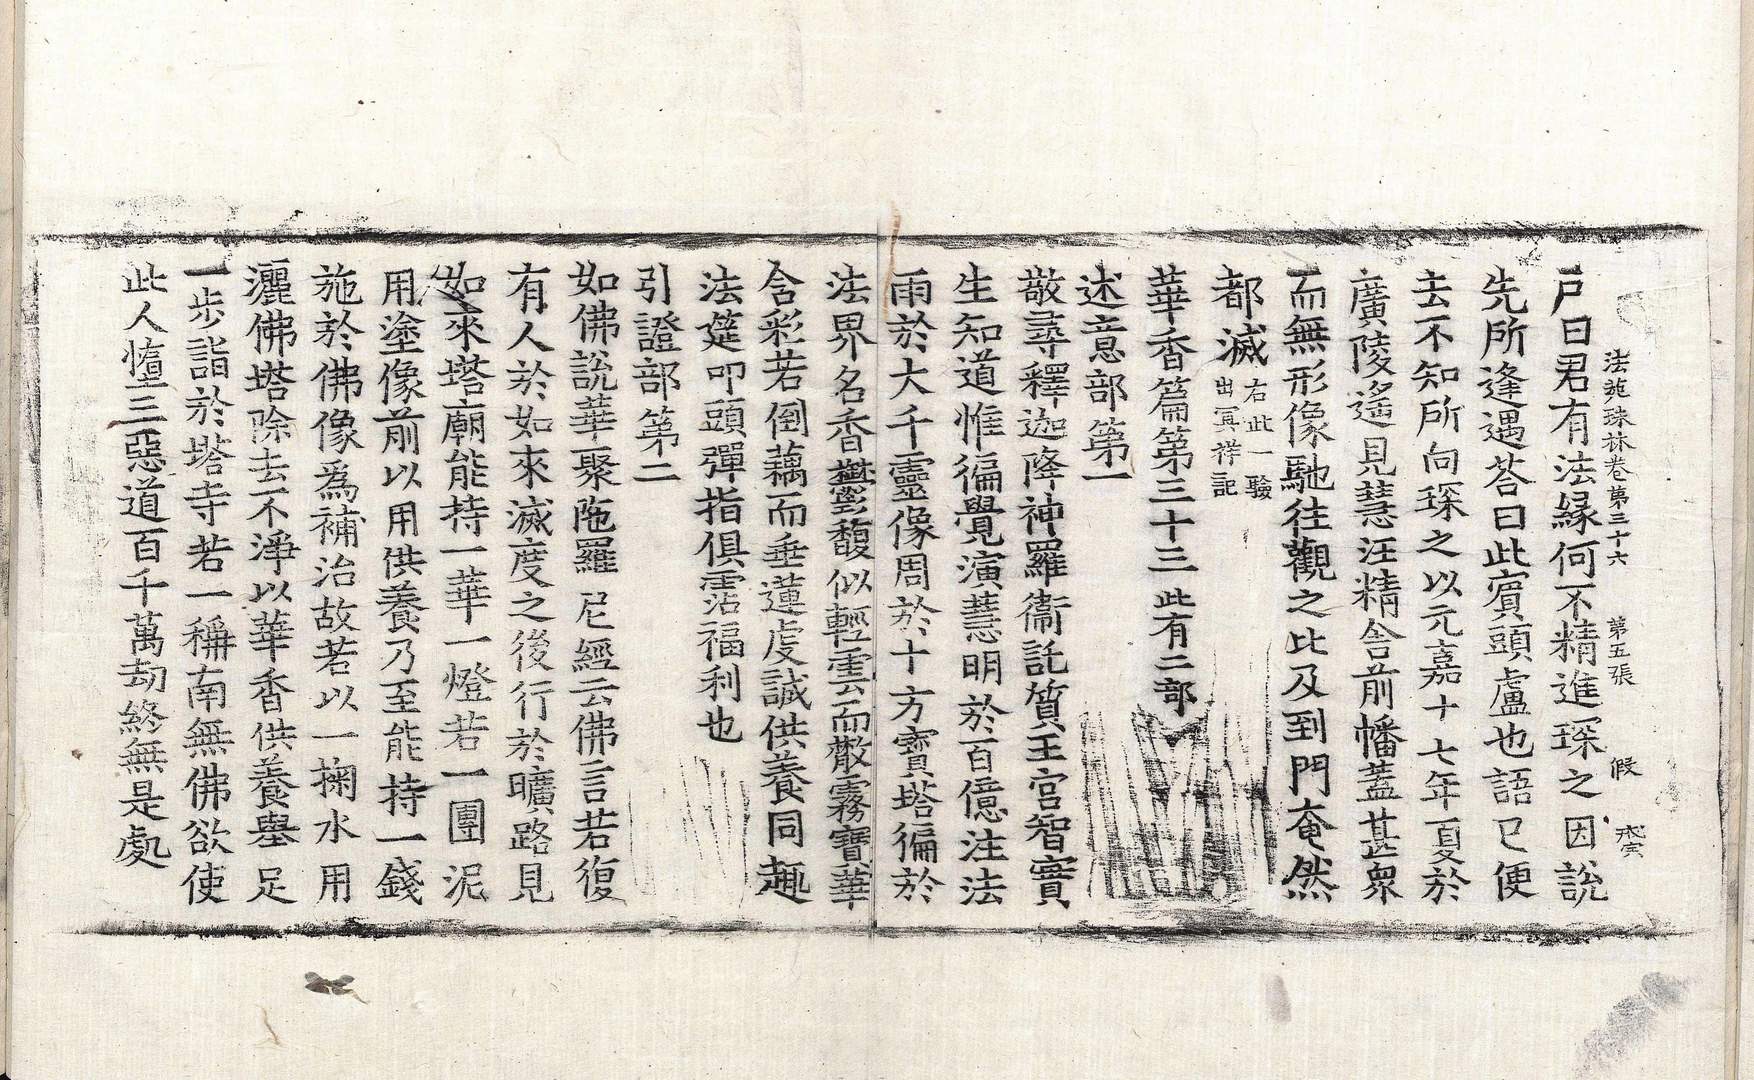 法苑珠林卷第三十六　第五張　假
戸曰君有法緣何不精進琛之因說
先所逢遇荅曰此賓頭盧也語已便
去不知所向琛之以元嘉十七年夏於
廣陵遙見慧汪精舍前幡蓋甚衆
而無形像馳往觀之比及到門奄然
都滅右此一驗
出冥祥記
華香篇第三十三此有二部
述意部第一
敬尋釋迦降神羅衞託質王宮智實
生知道惟徧覺演慧明於百億注法
雨於大千靈像周於十方寶塔徧於
法界名香鬱馥似輕雲而散霧寶華
含彩若倒藕而垂蓮虔誠供養同趣
法筵叩頭彈指俱霑福利也
引證部第二
如佛說華聚陁羅尼經云佛言若復
有人於如來滅度之後行於曠路見
如來塔廟能持一華一燈若一團泥
用塗像前以用供養乃至能持一錢
施於佛像爲補治故若以一掬水用
灑佛塔除去不淨以華香供養舉足
一步詣於塔寺若一稱南無佛欲使
此人墮三惡道百千萬劫終無是處